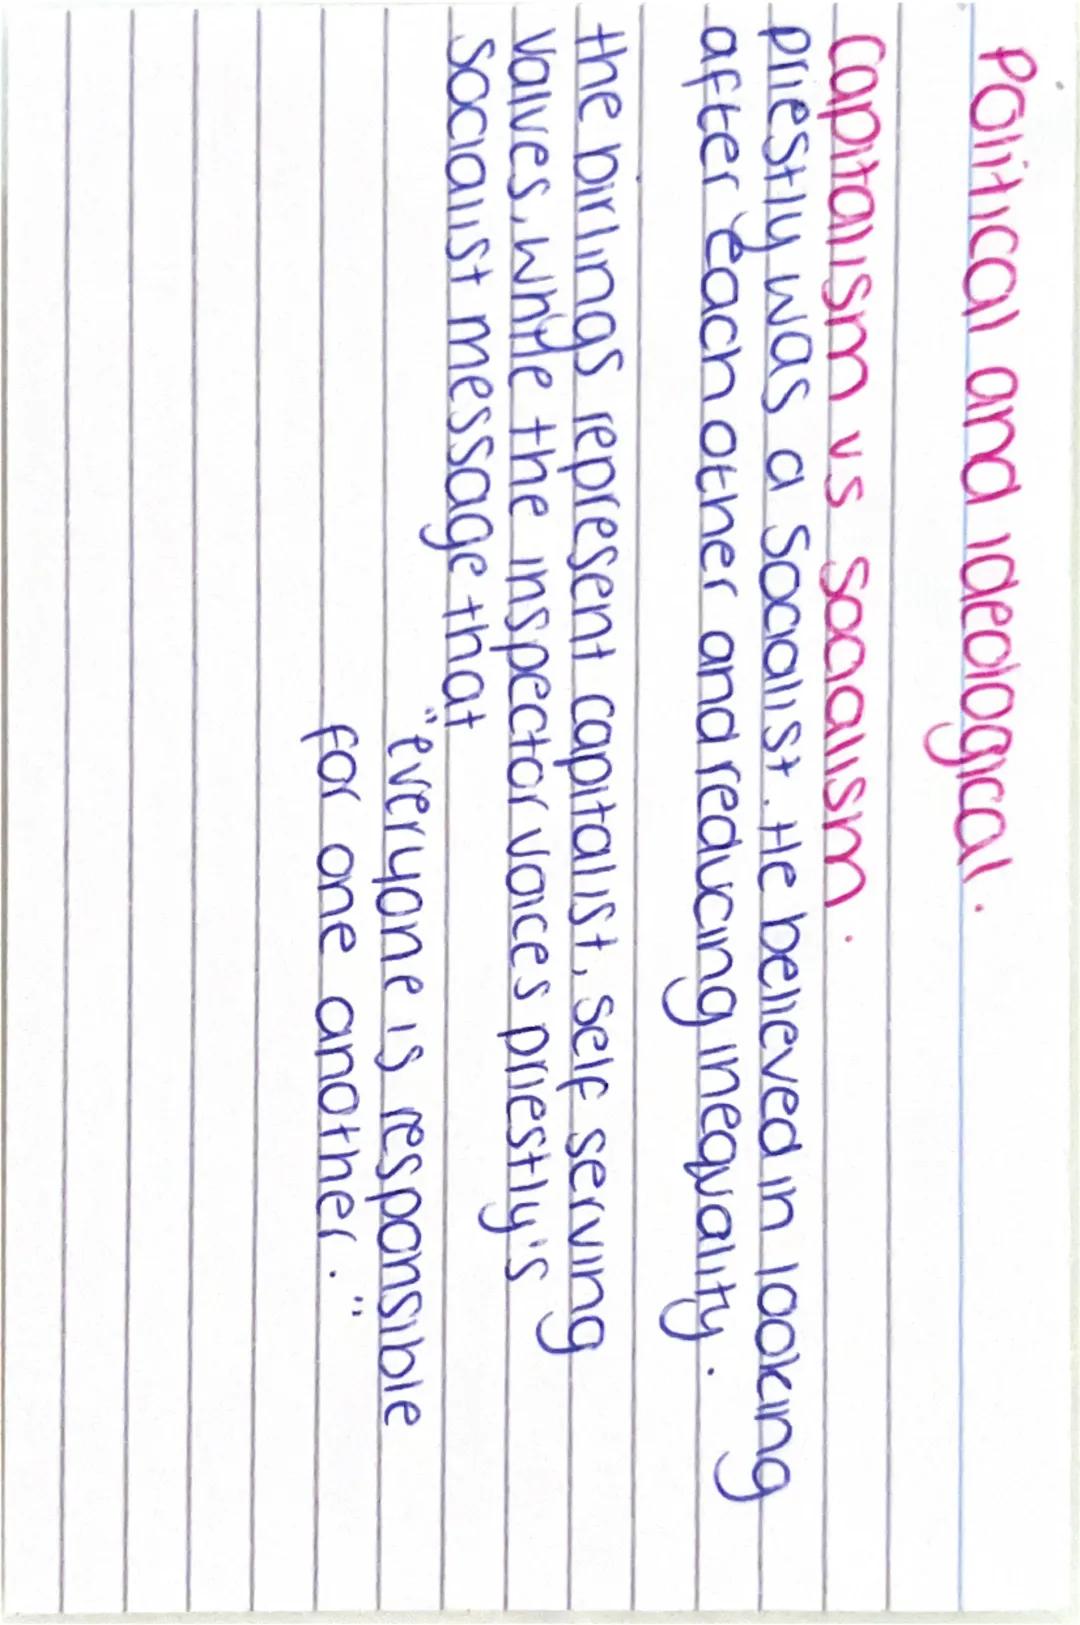 Political and ideological.
Capitalism vs Socialism.
priestly was a Socialist. He believed in looking
after each other and reducing inequality.
the birlings represent capitalist, self serving
values, while the inspector voices priestly's
socialist message that
"everyone is responsible
for one another."